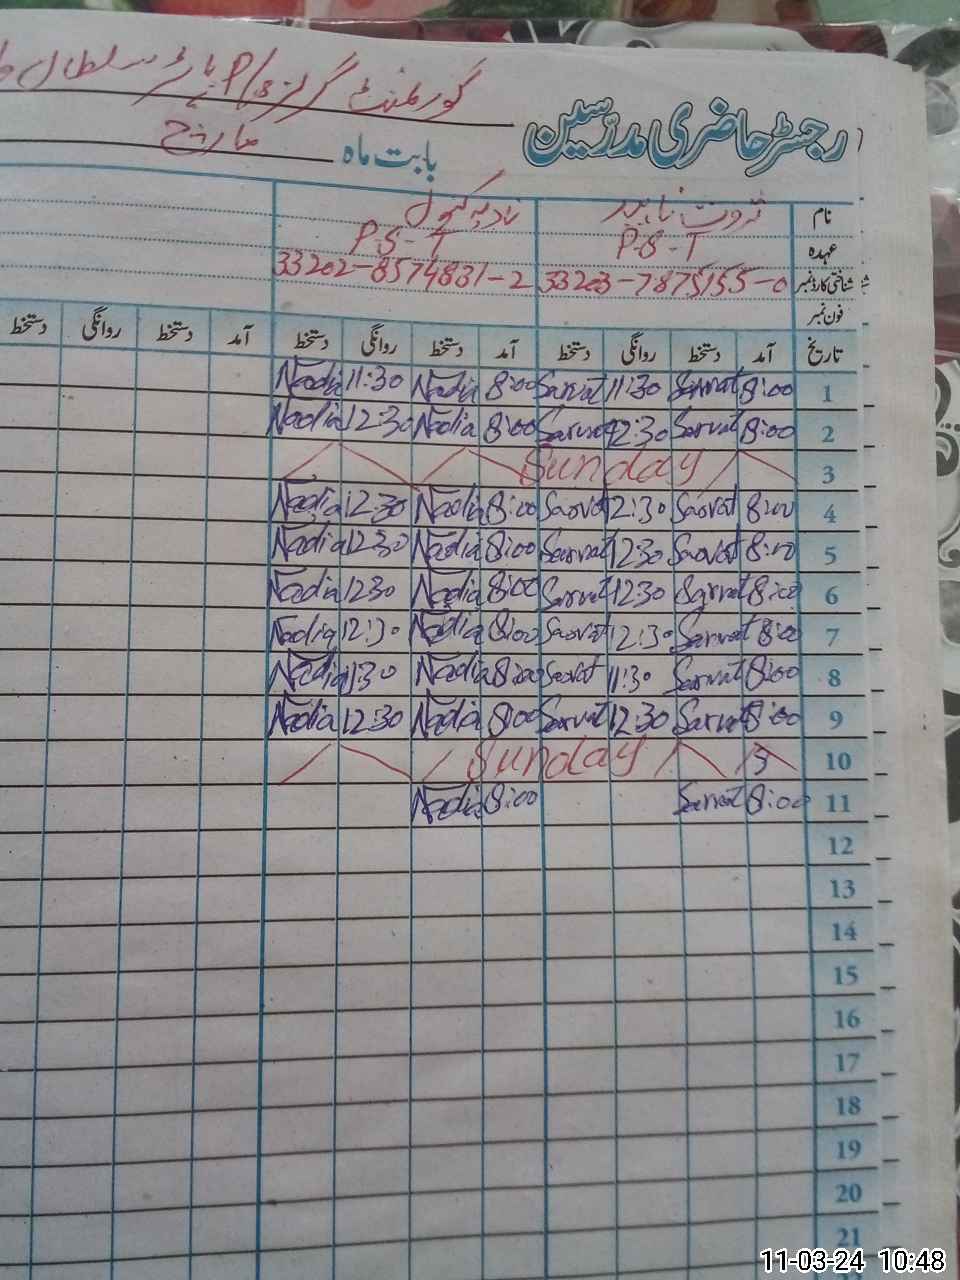 گورنمنٹ گرلز P/S
رجسٹر حاضری مدرسین
بابت ماہ مارچ
نام ثروت ناہید نادیہ کنول
عہدہ P-S-T P-S-T
شناختی کارڈ نمبر 33203-7875155-0 33202-8574831-2
فون نمبر
تاریخ آمد دستخط روانگی دستخط آمد دستخط روانگی دستخط آمد دستخط روانگی دستخط
1 8:00 Sarvat 11:30 Sarvat 8:00 Nadia 11:30 Nadia
2 8:00 Sarvat 12:30 Sarvat 8:00 Nadia 12:30 Nadia
3 Sunday
4 8:00 Sarvat 12:30 Sarvat 8:00 Nadia 12:30 Nadia
5 8:00 Sarvat 12:30 Sarvat 8:00 Nadia 12:30 Nadia
6 8:00 Sarvat 12:30 Sarvat 8:00 Nadia 1230 Nadia
7 8:00 Sarvat 12:30 Sarvat 8:00 Nadia 12:30 Nadia
8 8:00 Sarvat 11:30 Sarvat 8:00 Nadia 11:30 Nadia
9 8:00 Sarvat 12:30 Sarvat 8:00 Nadia 12:30 Nadia
10 Sunday
11 8:00 Sarvat 8:00 Nadia
12
13
14
15
16
17
18
19
20
21
11-03-24 10:48